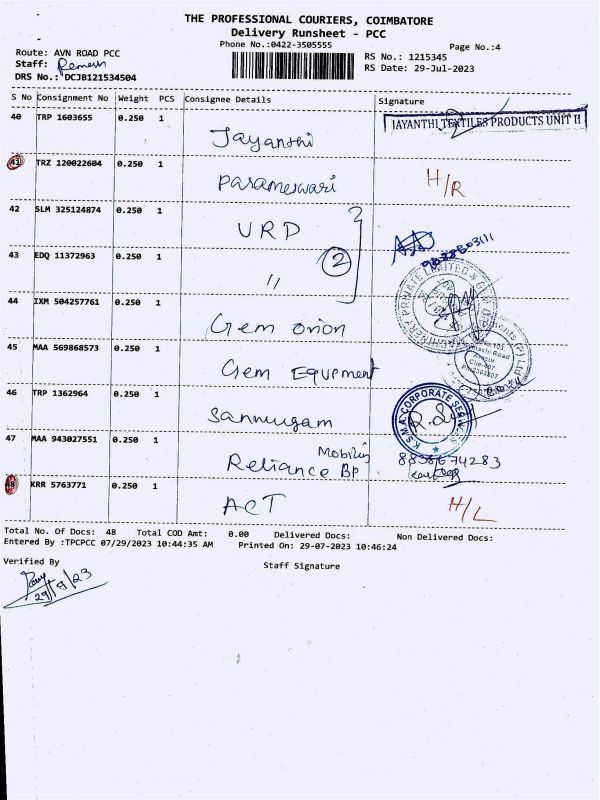 THE PROFESSIONAL COURIERS, COIMBATORE
Delivery Runsheet - PCC
Phone No.:0422-3505555
Page No.:4
Route: AVN ROAD PCC
Staff: Ramesh
DRS No.: DCJB121534504
RS No.: 1215345
RS Date: 29-Jul-2023
S No Consignment No Weight PCS Consignee Details Signature
40 TRP 1603655 0.250 1 Jayanthi
JAYANTHI TEXTILES PRODUCTS UNIT II
41 TRZ 120022604 0.250 1 Parameswari H/R
42 SLM 325124874 0.250 1 URD
43 EDQ 11372963 0.250 1 〃 2
44 IXM 504257761 0.250 1 Gem orion
45 MAA 569868573 0.250 1 Gem Equpment
46 TRP 1362964 0.250 1 Sanmugam
K.S.M.A CORPORATE SERVICES
47 MAA 943027551 0.250 1 Reliance BP Mobility
8898674283
48 KRR 5763771 0.250 1 ACT H/L
Total No. Of Docs: 48 Total COD Amt: 0.00 Delivered Docs: Non Delivered Docs:
Entered By :TPCPCC 07/29/2023 10:44:35 AM Printed On: 29-07-2023 10:46:24
Verified By
Staff Signature